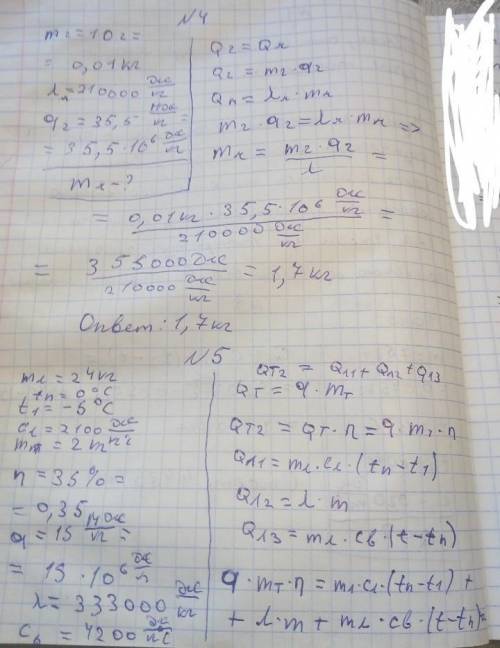 №4
mг = 10г =
= 0,01 кг
λл = 210000 Дж/кг
qг = 35,5 МДж/кг =
= 35,5·10⁶ Дж/кг
mл - ?
Qг = Qл
Qг = mг · qг
Qл = λл · mл
mг · qг = λл · mл =>
mл = mг · qг / λ =
= 0,01 кг · 35,5 · 10⁶ Дж/кг / 210000 Дж/кг =
= 355000 Дж / 210000 Дж/кг = 1,7 кг
Ответ: 1,7 кг
№5
mл = 24 кг
tп = 0°C
t1 = -5°C
cл = 2100 Дж/кг°C
mт = 2 m
п = 35% =
= 0,35
q = 15 МДж/кг =
= 15 · 10⁶ Дж/
λ = 333000 Дж/кг
cв = 4200 Дж/кг°C
QТ2 = Qл1 + Qл2 + Qл3
QТ = q · mт
QТ2 = QТ · п = q · mт · п
Qл1 = mл · cл · (tп - t1)
Qл2 = λ · m
Qл3 = mл · cв · (t - tп)
q · mт · п = mл · cл · (tп - t1) +
+ λ · m + mл · cв · (t - tп) =